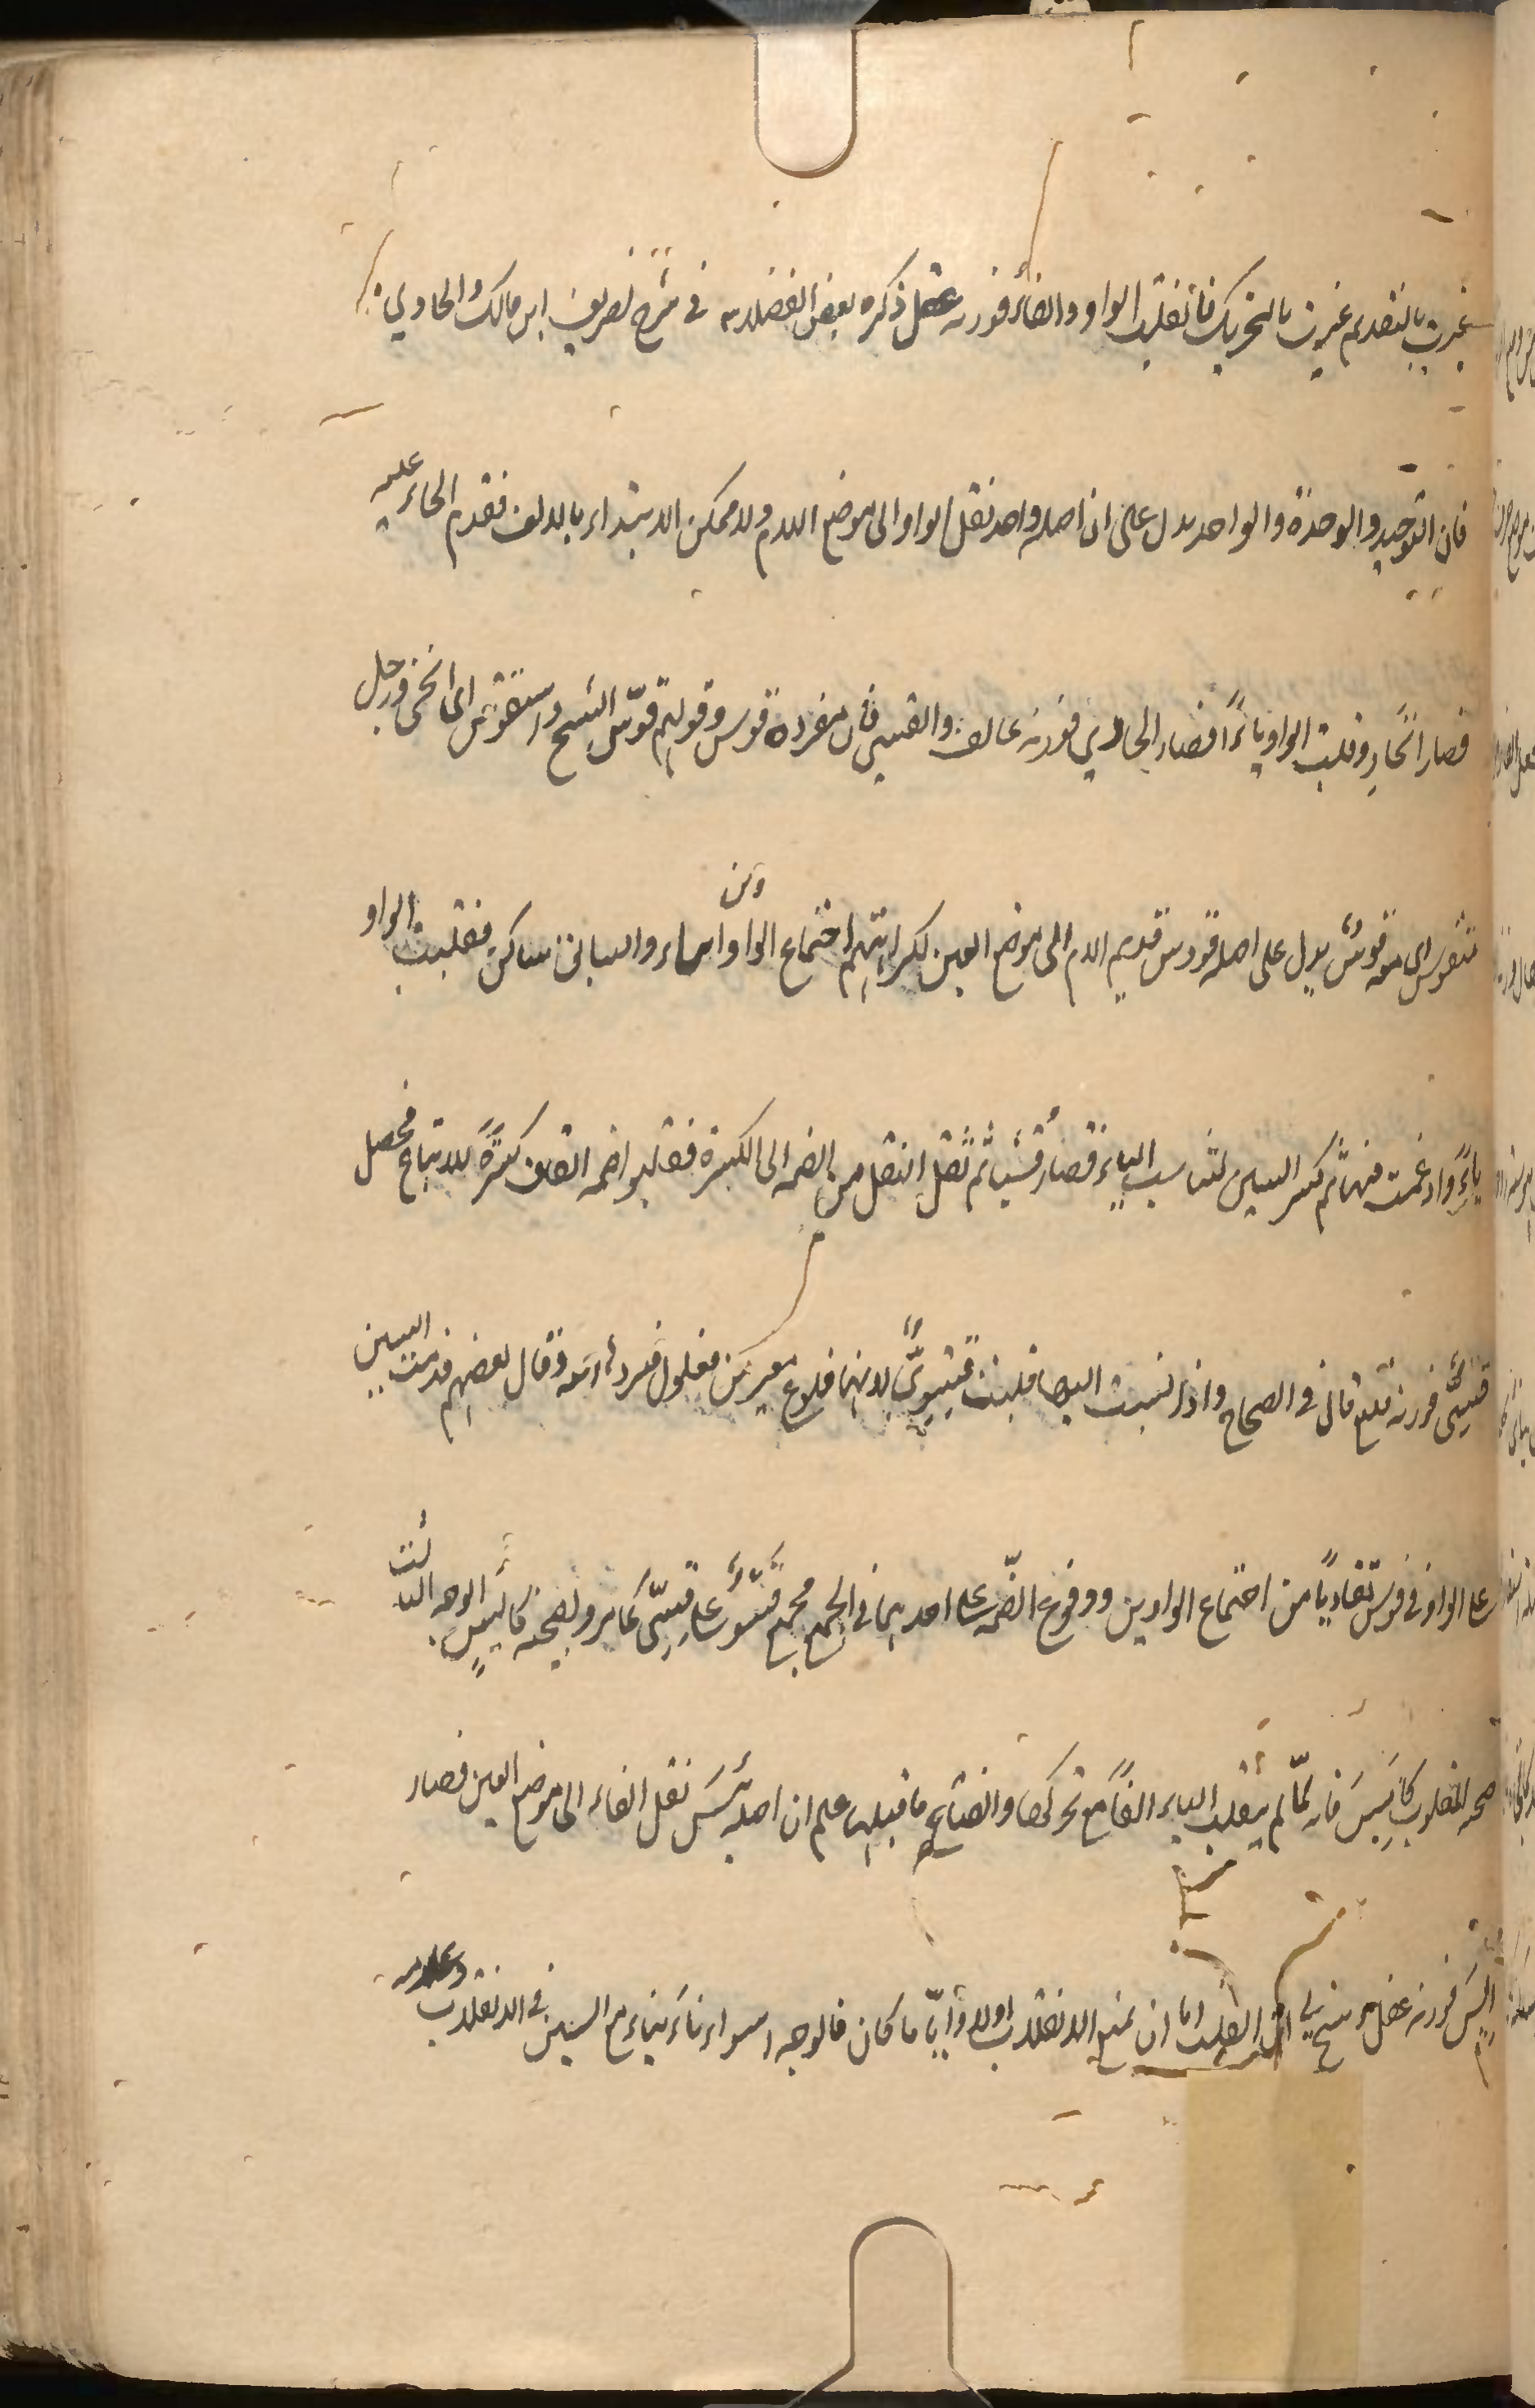 غيرت بالتقديم غيرت بالتحريك فانقلبت الواو الفا فوزنه عفل ذكره بعض الفضلاء في شرح تصريف ابن مالك والحاوي
فان التوحيد والوحدة والواحد يدل على ان اصله واحد نقل الواو الى موضع اللام ولا يمكن الابتداء بالالف فقدم الحاء عليه
فصار الحادو قلبت الواو ياءً فصار الحادي فوزنه عالف والقسي فان مفرده قوس وقولهم قوّس الشيخ واستقوس اى انحنى ورجل
متقوس اى معه قوسٌ يدل على اصله قووس قديم اللام الى موضع العين لكراهتهم اجتماع الواوان والياء والسابق ساكن فقلبت الواو
ياءً وادغمت فيها ثم كسر السين لتناسب الياء فصار قُسِيا ثم ثقل النقل من الضمة الى الكسرة فقلبوا ضمة القاف كسرةً للاتباع فحصل
قِسِىٌّ فوزنه فليع قال في الصحاح واذا نسبت اليها قلت قُسَوِىٌّ لانها فلوع مغير من فعول فتردها اليه وقال بعضهم قدمت السين
على الواو في قوس تفاديًا من اجتماع الواوين ووقوع الضمة على احديهما في الجمع فجمع قَسْوٌ على قِسِىّ كما مر وبصحته كأيِسَ الوجه الثالث
صحة المقلوب كأيِسَ فانه لمّا لم يقلب الياء الفاً مع تحركها وانفتاح ما قبلها علم ان اصله يَئِسَ نقل الفاء الى موضع العين فصار
اَيِسَ فوزنه عفل القلب اما ان يمنع الانقلاب اولا وأيّا ما كان فالوجه استواء ناءَ يناء مع اليسين في الانقلاب وعدمه